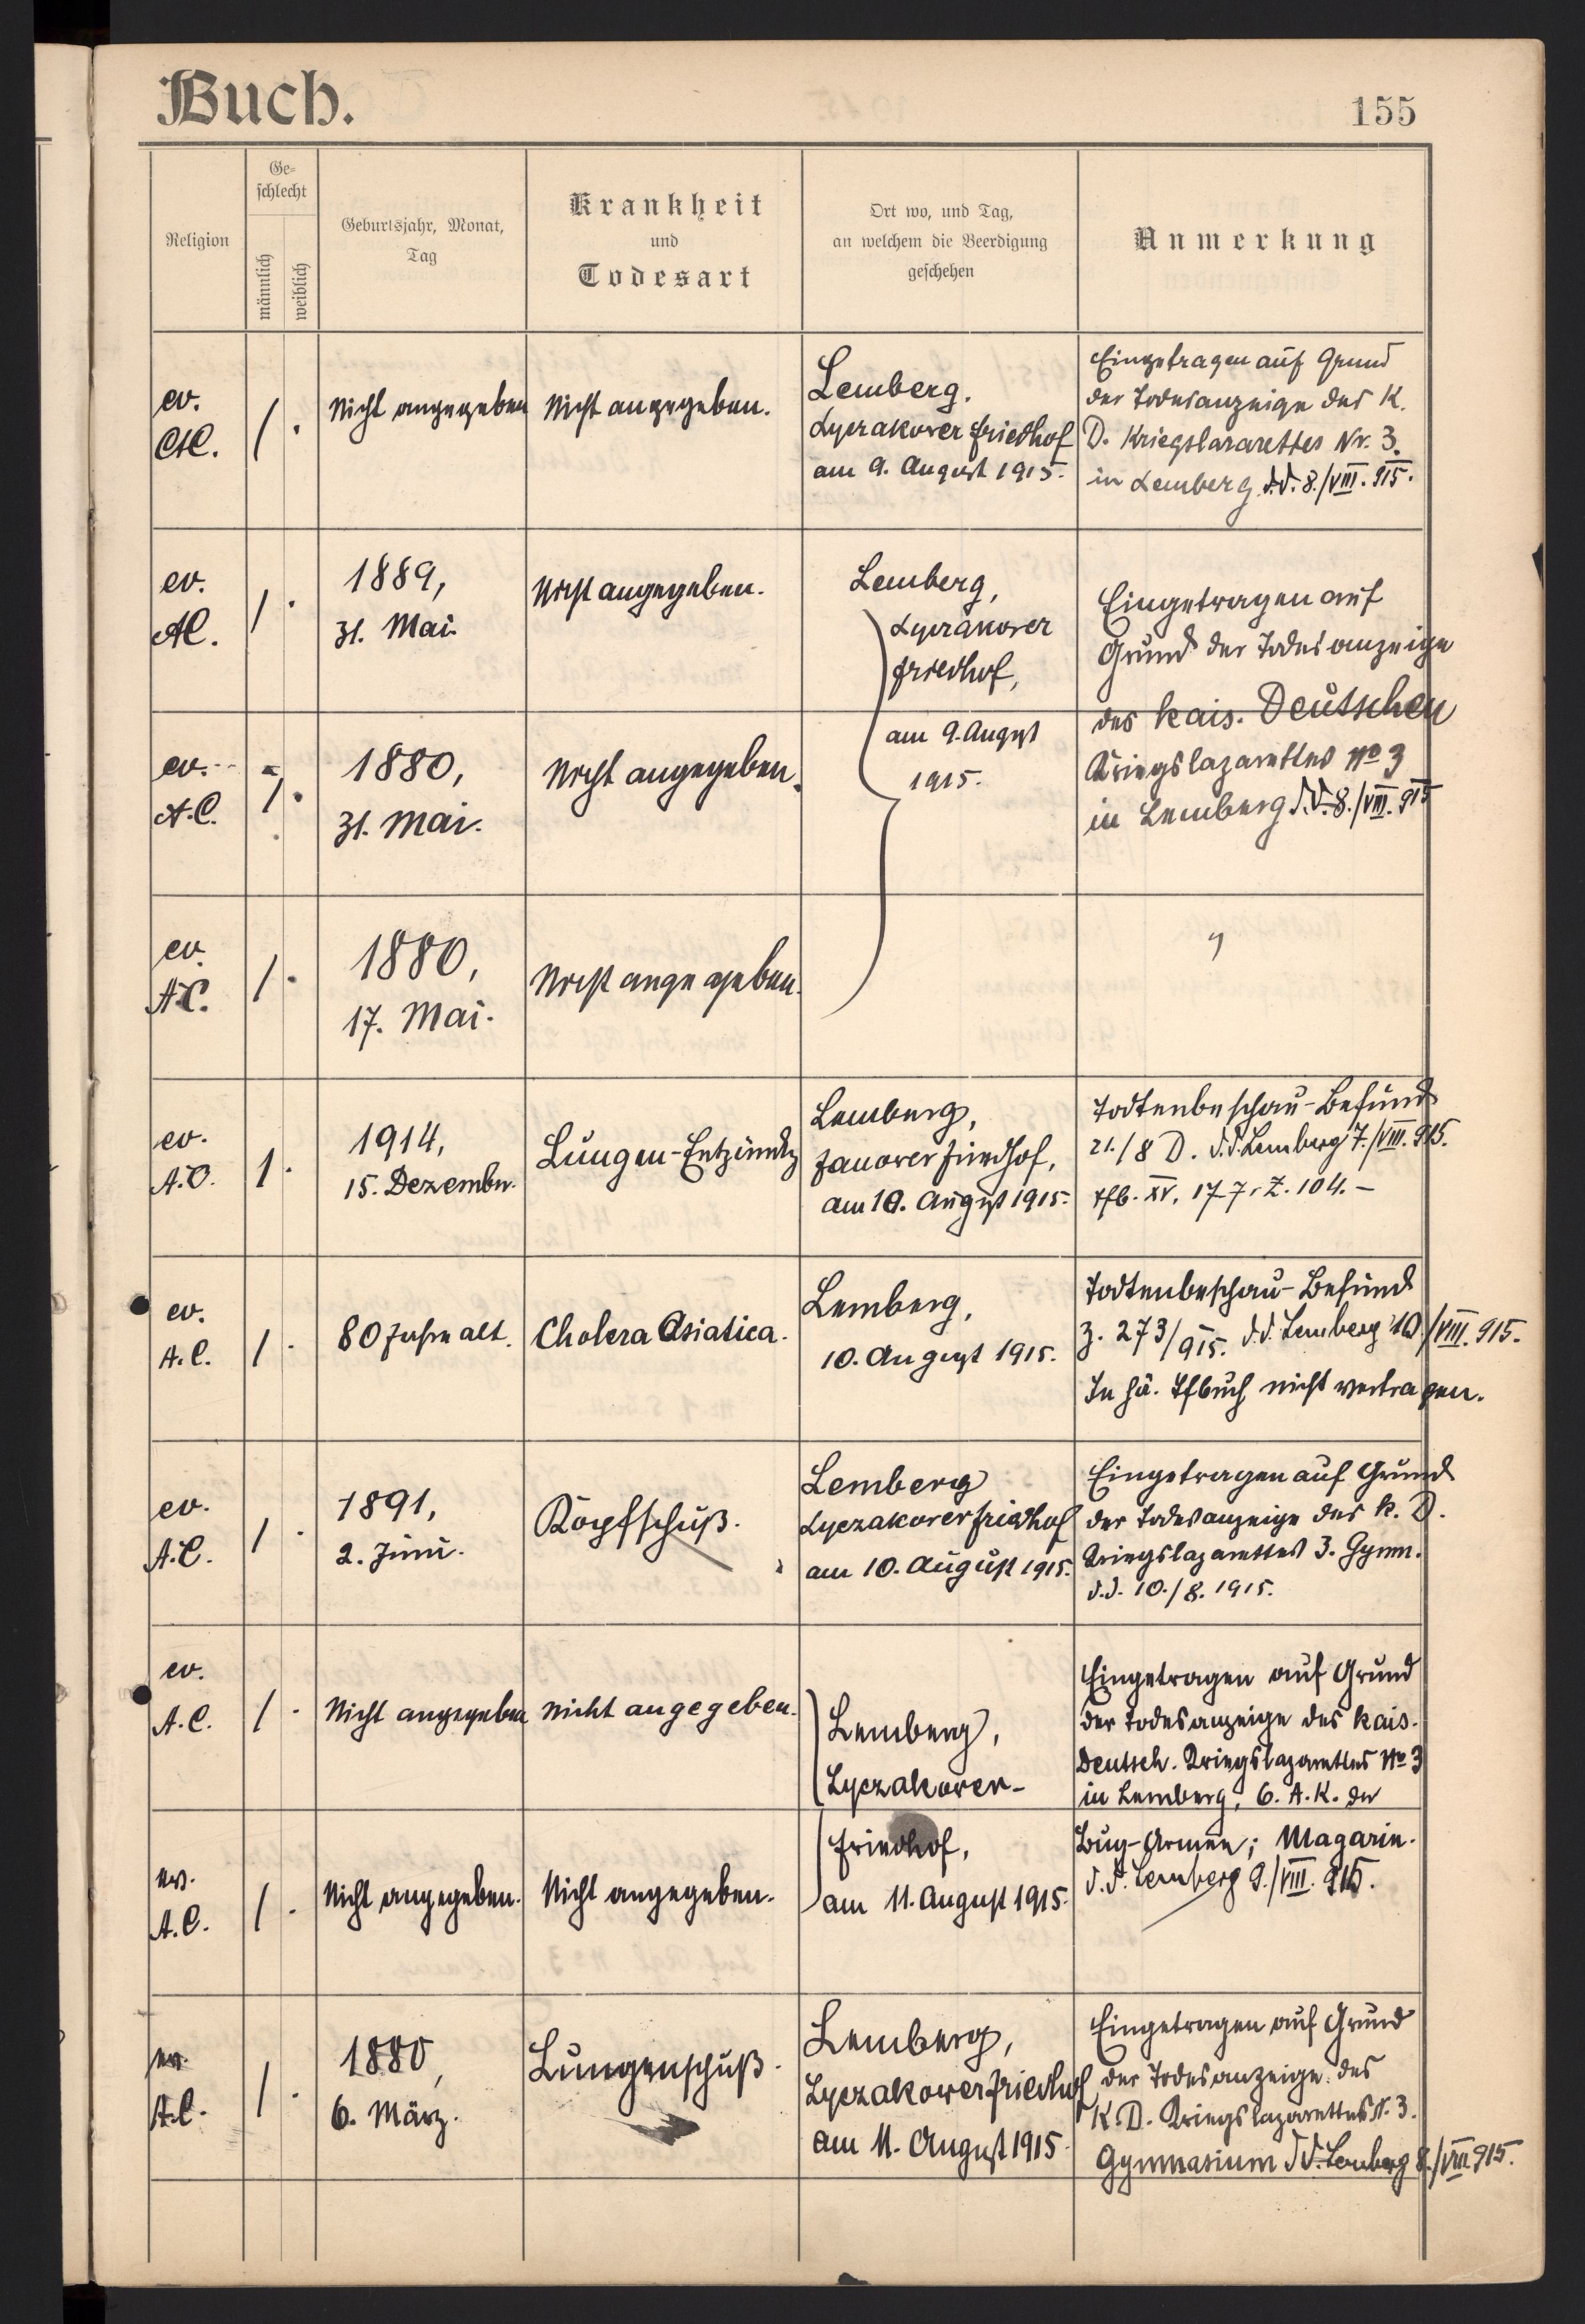 Buch.
155
Religion
Ge-
schlecht
männlich
weiblich
Geburtsjahr, Monat,
Tag
Krankheit
und
Todesart
Ort wo, und Tag,
an welchem die Beerdigung
geschehen
Anmerkung
ev.
A.C.
1
.
Nicht angegeben
Nicht angegeben.
Lemberg.
Lyczakower Friedhof
am 9. August 1915.
Eingetragen auf Grund
der Todesanzeige des K.
D. Kriegslazarettes Nr. 3.
in Lemberg d.d. 8./VIII. 915.
ev.
A.C.
1
.
1889,
31. Mai
Nicht angegeben.
Lemberg,
Lyczakower
Friedhof,
am 9. August
1915.
Eingetragen auf
Grund der Todesanzeige
des kais. Deutschen
Kriegslazarettes No 3
in Lemberg d.d. 8./VIII. 915
ev.
A.C.
1
.
1880,
31. Mai.
Nicht angegeben.
ev.
A.C.
1
.
1880,
17. Mai.
Nicht angegeben.
"
ev.
A.C.
1
.
1914,
15. Dezember.
Lungen-Entzündg
Lemberg,
Janower Friedhof,
am 10. August 1915.
Todtenbeschau-Befund
21./8 D. d.d. Lemberg 7./VIII. 915.
Tfb. XV. 177. Z. 104. –
ev.
A.C.
1
.
80 Jahre alt.
Cholera Asiatica.
Lemberg,
10. August 1915.
Todtenbeschau-Befund
Z. 273/915. d.d. Lemberg 10/VIII. 915.
In hä. Tfbuch nicht vertragen.
ev.
A.C.
1
.
1891,
2. Juni.
Kopfschuß.
Lemberg
Lyczakower Friedhof
am 10. August 1915.
Eingetragen auf Grund
der Todesanzeige des k. D.
Kriegslazarettes 3. Gymn.
d.d. 10./8. 1915.
ev.
A.C.
1
.
Nicht angegeben
nicht angegeben.
Lemberg,
Lyczakower-
Friedhof,
am 11. August 1915.
Eingetragen auf Grund
der Todesanzeige des kais.
Deutsch. Kriegslazarettes No 3
in Lemberg, 6. A.K. der
Bug-Armee; Magazin.
d.d. Lemberg 9./VIII. 915.
ev.
A.C.
1
.
Nicht angegeben.
Nicht angegeben.
ev.
A.C.
1
.
1880,
6. März.
Lungenschuß.
Lemberg,
Lyczakower Friedhof
am 11. August 1915.
Eingetragen auf Grund
der Todesanzeige des
K. D. Kriegslazarettes N. 3.
Gymnasium d.d. Lemberg 8./VIII 915.